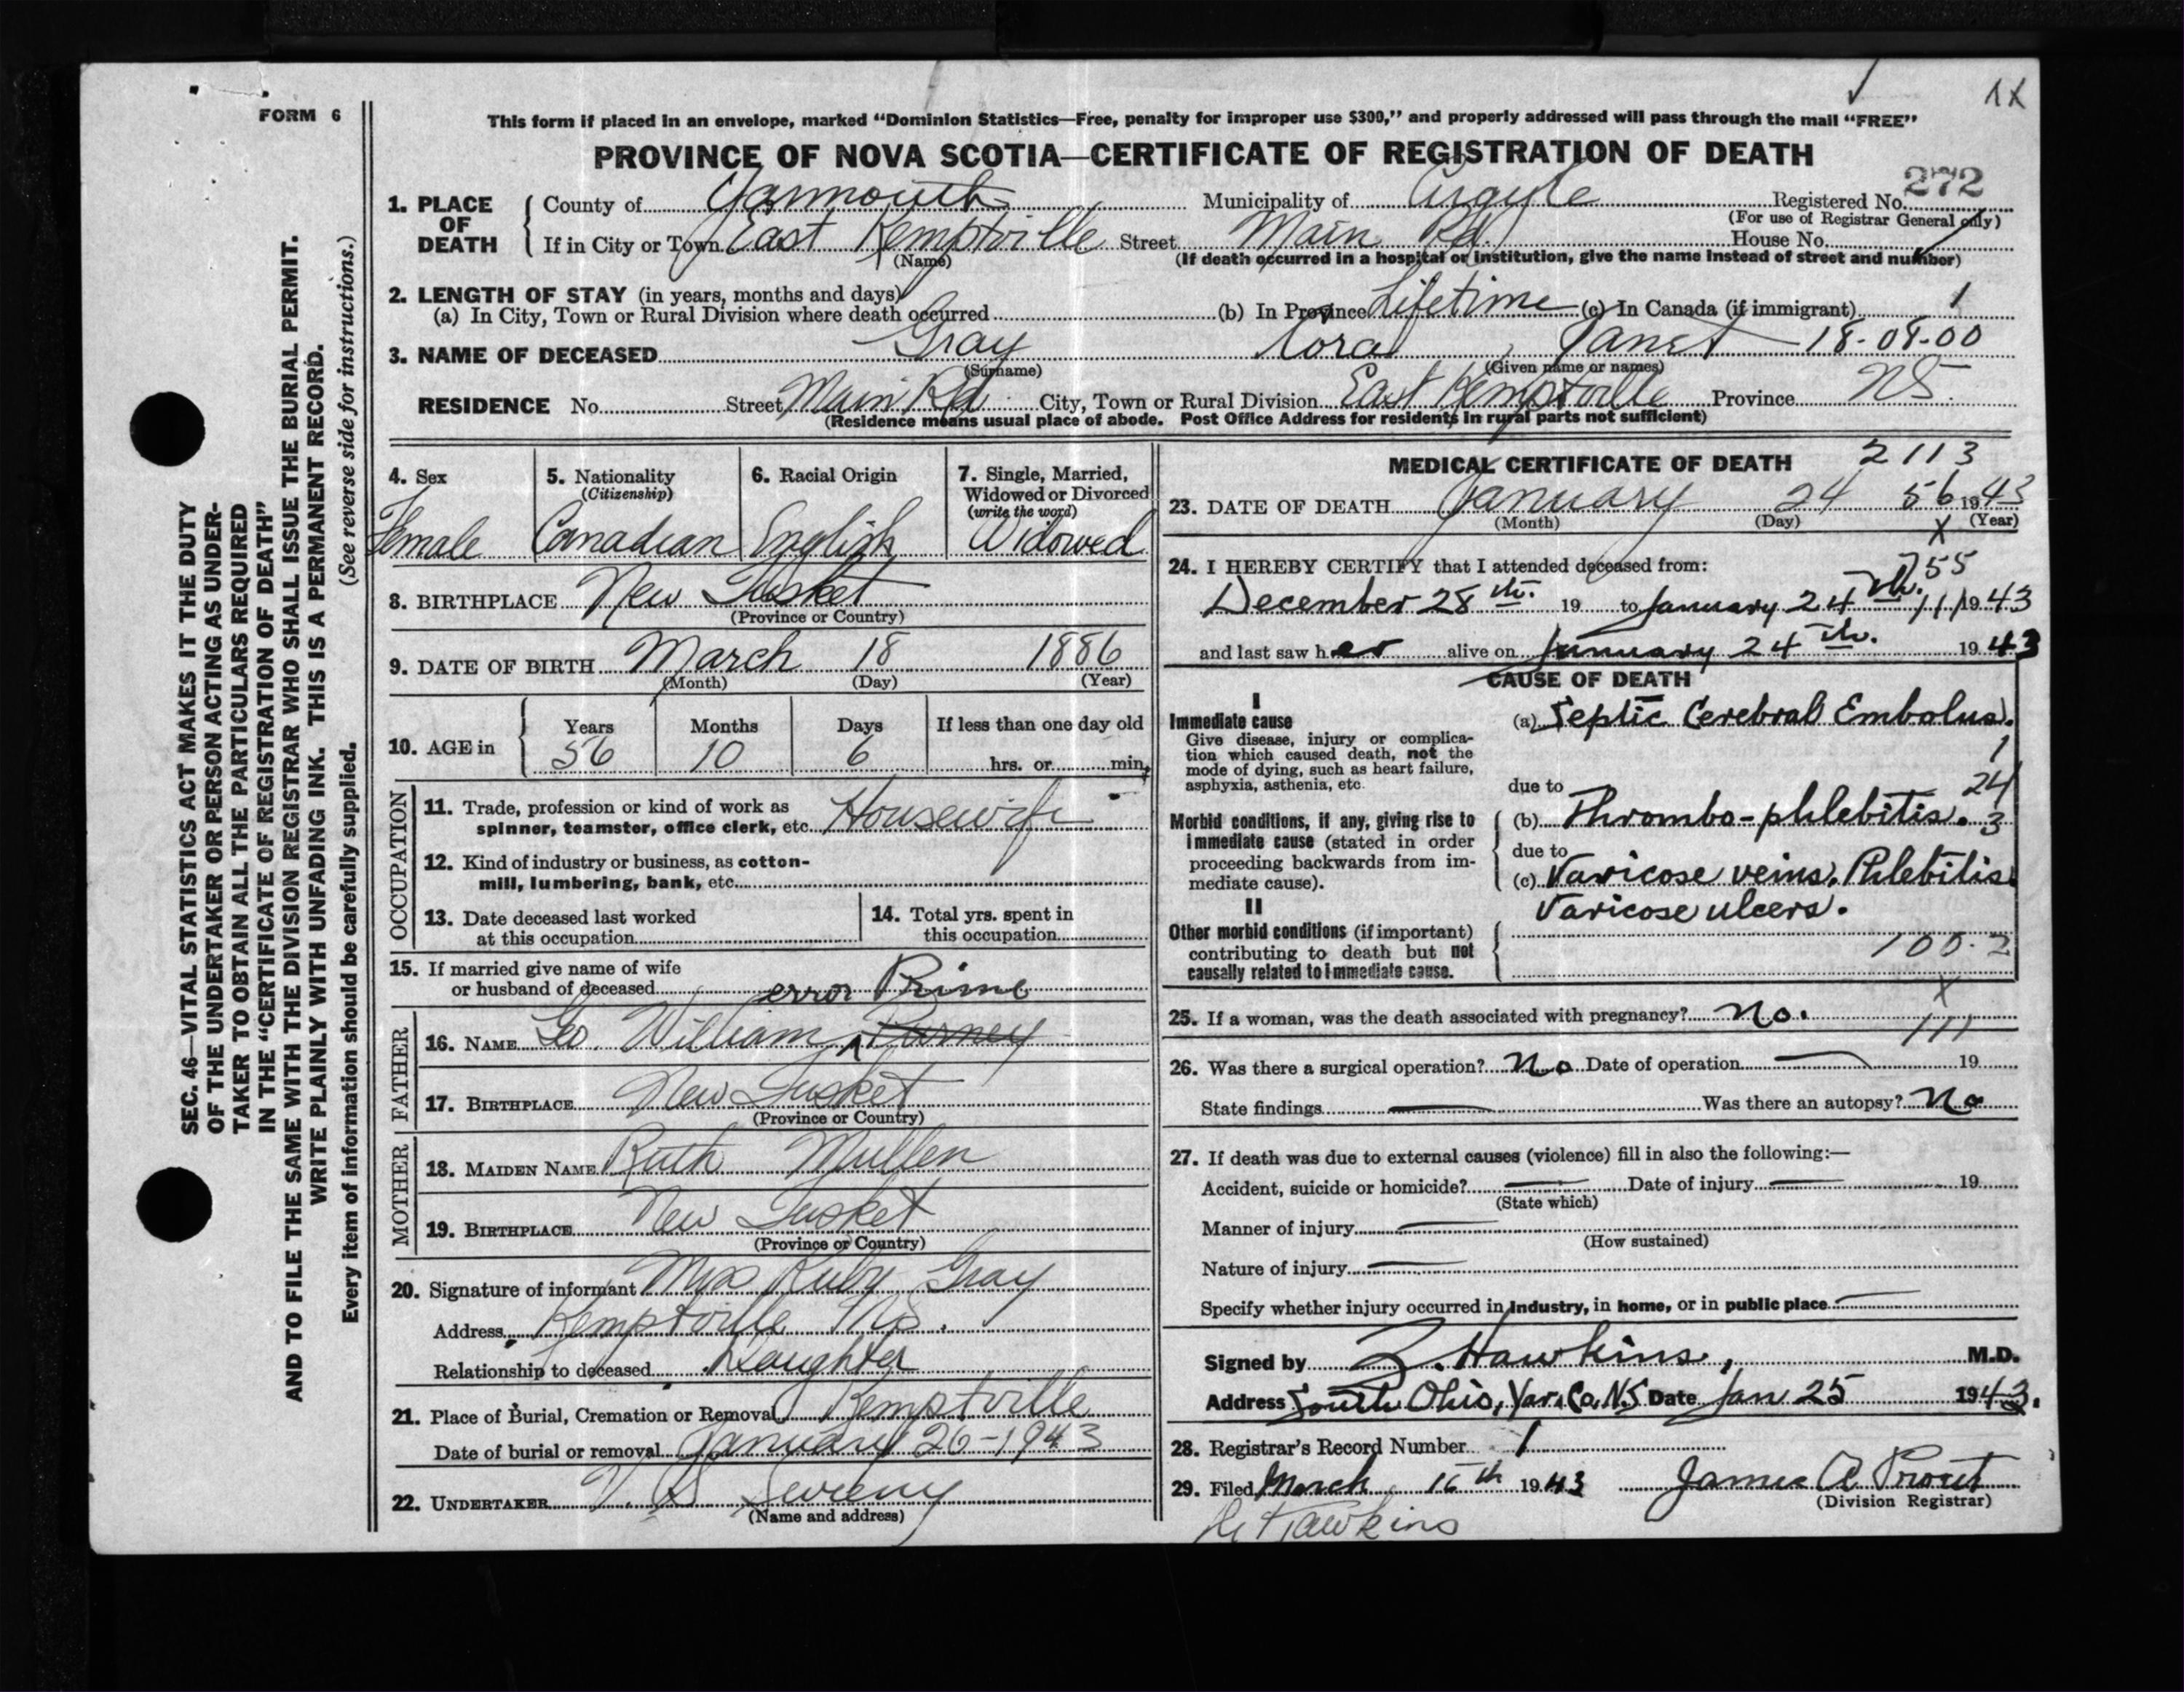 1X
FORM 6
This form if placed in an envelope, marked “Dominion Statistics—Free, penalty for improper use $300,” and properly addressed will pass through the mail “FREE”
PROVINCE OF NOVA SCOTIA—CERTIFICATE OF REGISTRATION OF DEATH
272
1. PLACE OF DEATH County of Yarmouth Municipality of Argyle Registered No.
(For use of Registrar General only)
If in City or Town East Kemptville Street Main Rd House No.
(Name) (If death occurred in a hospital or institution, give the name instead of street and number)
2. LENGTH OF STAY (in years, months and days)
(a) In City, Town or Rural Division where death occurred (b) In Province Lifetime (c) In Canada (if immigrant) 1
3. NAME OF DECEASED Gray Cora Janet 18-08-00
(Surname) (Given name or names)
RESIDENCE No. Street Main Rd City, Town or Rural Division East Kemptville Province NS.
(Residence means usual place of abode. Post Office Address for residents in rural parts not sufficient)
4. Sex
Female
5. Nationality
(Citizenship)
Canadian
6. Racial Origin
English
7. Single, Married,
Widowed or Divorced
(write the word)
Widowed
8. BIRTHPLACE New Tusket
(Province or Country)
9. DATE OF BIRTH March 18 1886
(Month) (Day) (Year)
10. AGE in Years Months Days If less than one day old
56 10 6 hrs. or min.
OCCUPATION
11. Trade, profession or kind of work as
spinner, teamster, office clerk, etc. Housewife
12. Kind of industry or business, as cotton-
mill, lumbering, bank, etc.
13. Date deceased last worked
at this occupation
14. Total yrs. spent in
this occupation
15. If married give name of wife
or husband of deceased
error Prime
FATHER
16. NAME Geo. William Purney
17. BIRTHPLACE New Tusket
(Province or Country)
MOTHER
18. MAIDEN NAME Ruth Mullen
19. BIRTHPLACE New Tusket
(Province or Country)
20. Signature of informant Miss Ruby Gray
Address Kemptville N.S.
Relationship to deceased Daughter
21. Place of Burial, Cremation or Removal Kemptville
Date of burial or removal January 26-1943
22. UNDERTAKER V. S. Sweeny
(Name and address)
MEDICAL CERTIFICATE OF DEATH 2113
23. DATE OF DEATH January 24 56 1943
(Month) (Day) X (Year)
24. I HEREBY CERTIFY that I attended deceased from: 755
December 28th. 19 to January 24th. 111 1943
and last saw her alive on January 24th. 1943
CAUSE OF DEATH
I
Immediate cause
Give disease, injury or complica-
tion which caused death, not the
mode of dying, such as heart failure,
asphyxia, asthenia, etc.
(a) Septic Cerebral Embolus.
1
due to 24
Morbid conditions, if any, giving rise to
immediate cause (stated in order
proceeding backwards from im-
mediate cause).
(b) Thrombo-phlebitis. 3
due to
(c) Varicose veins. Phlebitis.
Varicose ulcers.
II
Other morbid conditions (if important)
contributing to death but not
causally related to immediate cause.
100.2
X
25. If a woman, was the death associated with pregnancy? No.
111
26. Was there a surgical operation? No Date of operation 19
State findings Was there an autopsy? No
27. If death was due to external causes (violence) fill in also the following:—
Accident, suicide or homicide? Date of injury 19
(State which)
Manner of injury
(How sustained)
Nature of injury
Specify whether injury occurred in industry, in home, or in public place
Signed by Z. Hawkins, M.D.
Address South Ohio, Yar. Co. N.S. Date Jan 25 1943.
28. Registrar's Record Number 1
29. Filed March 15th 1943 James A Prout
(Division Registrar)
Hawkins
SEC. 46—VITAL STATISTICS ACT MAKES IT THE DUTY
OF THE UNDERTAKER OR PERSON ACTING AS UNDER-
TAKER TO OBTAIN ALL THE PARTICULARS REQUIRED
IN THE “CERTIFICATE OF REGISTRATION OF DEATH”
AND TO FILE THE SAME WITH THE DIVISION REGISTRAR WHO SHALL ISSUE THE BURIAL PERMIT.
WRITE PLAINLY WITH UNFADING INK. THIS IS A PERMANENT RECORD.
Every item of information should be carefully supplied. (See reverse side for instructions.)